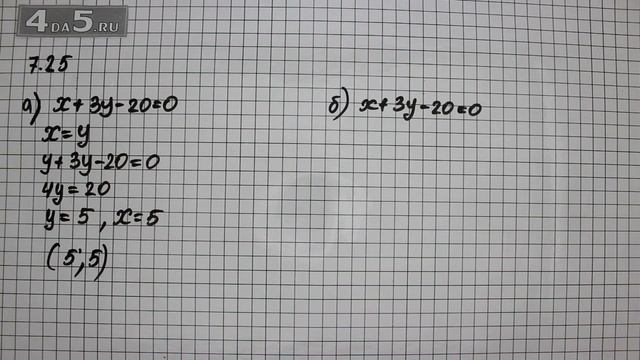 4DA5.RU
7.25
а) x+3y-20=0
x=y
y+3y-20=0
4y=20
y=5, x=5
(5;5)
б) x+3y-20=0